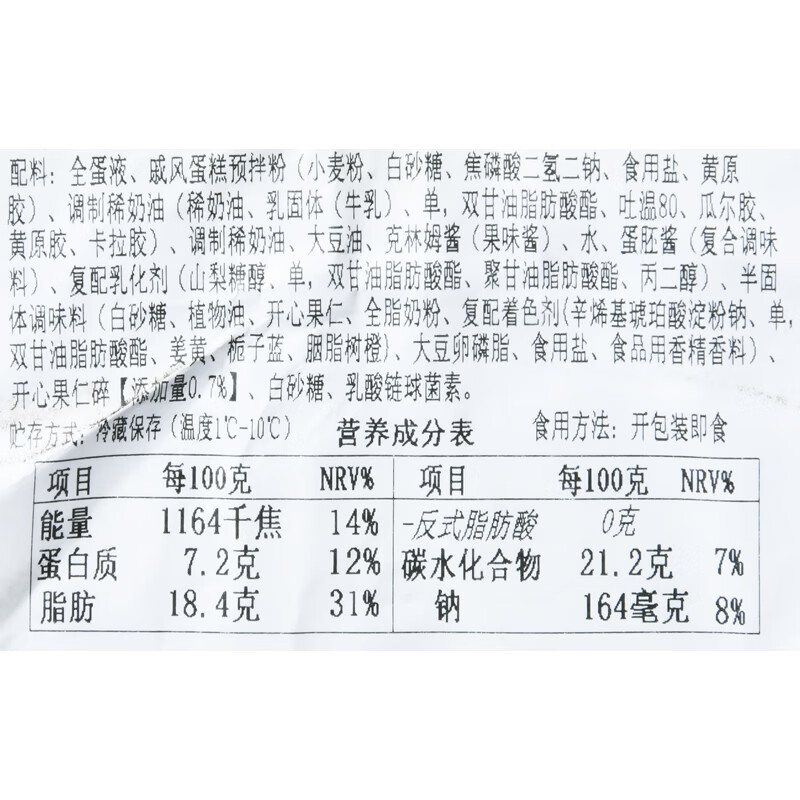 配料：全蛋液、戚风蛋糕预拌粉（小麦粉、白砂糖、焦磷酸二氢二钠、食用盐、黄原
胶）、调制稀奶油（稀奶油、乳固体（牛乳）、单，双甘油脂肪酸酯、吐温80、瓜尔胶、
黄原胶、卡拉胶）、调制稀奶油、大豆油、克林姆酱（果味酱）、水、蛋胚酱（复合调味
料）、复配乳化剂（山梨糖醇、单，双甘油脂肪酸酯、聚甘油脂肪酸酯、丙二醇）、半固
体调味料（白砂糖、植物油、开心果仁、全脂奶粉、复配着色剂(辛烯基琥珀酸淀粉钠、单，
双甘油脂肪酸酯、姜黄、栀子蓝、胭脂树橙)、大豆卵磷脂、食用盐、食品用香精香料）、
开心果仁碎【添加量0.7%】、白砂糖、乳酸链球菌素。
贮存方式：冷藏保存（温度1℃-10℃） 营养成分表 食用方法：开包装即食
项目 每100克 NRV% 项目 每100克 NRV%
能量 1164千焦 14% -反式脂肪酸 0克
蛋白质 7.2克 12% 碳水化合物 21.2克 7%
脂肪 18.4克 31% 钠 164毫克 8%